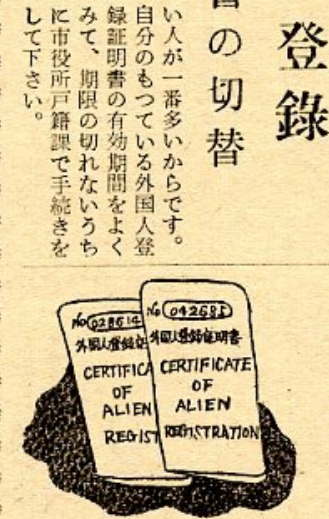 登録
の切替
い人が一番多いからです。
自分のもつている外国人登
録証明書の有効期間をよく
みて、期限の切れないうち
に市役所戸籍課で手続きを
して下さい。
No 028614
外国人登録証
CERTIFICA
OF
ALIEN
REGIST
No 042685
外国人登録証明書
CERTIFICATE
OF
ALIEN
REGISTRATION